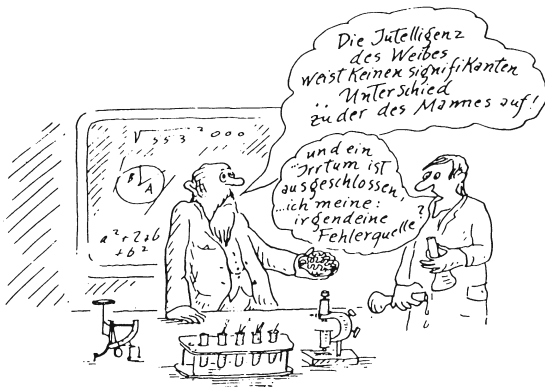 Die Intelligenz
des Weibes
weist keinen signifikanten
Unterschied
zu der des Mannes auf!
und ein
Irrtum ist
ausgeschlossen,
...ich meine:
irgendeine
Fehlerquelle?
√353²000
B
A
a²+2+b
+b²